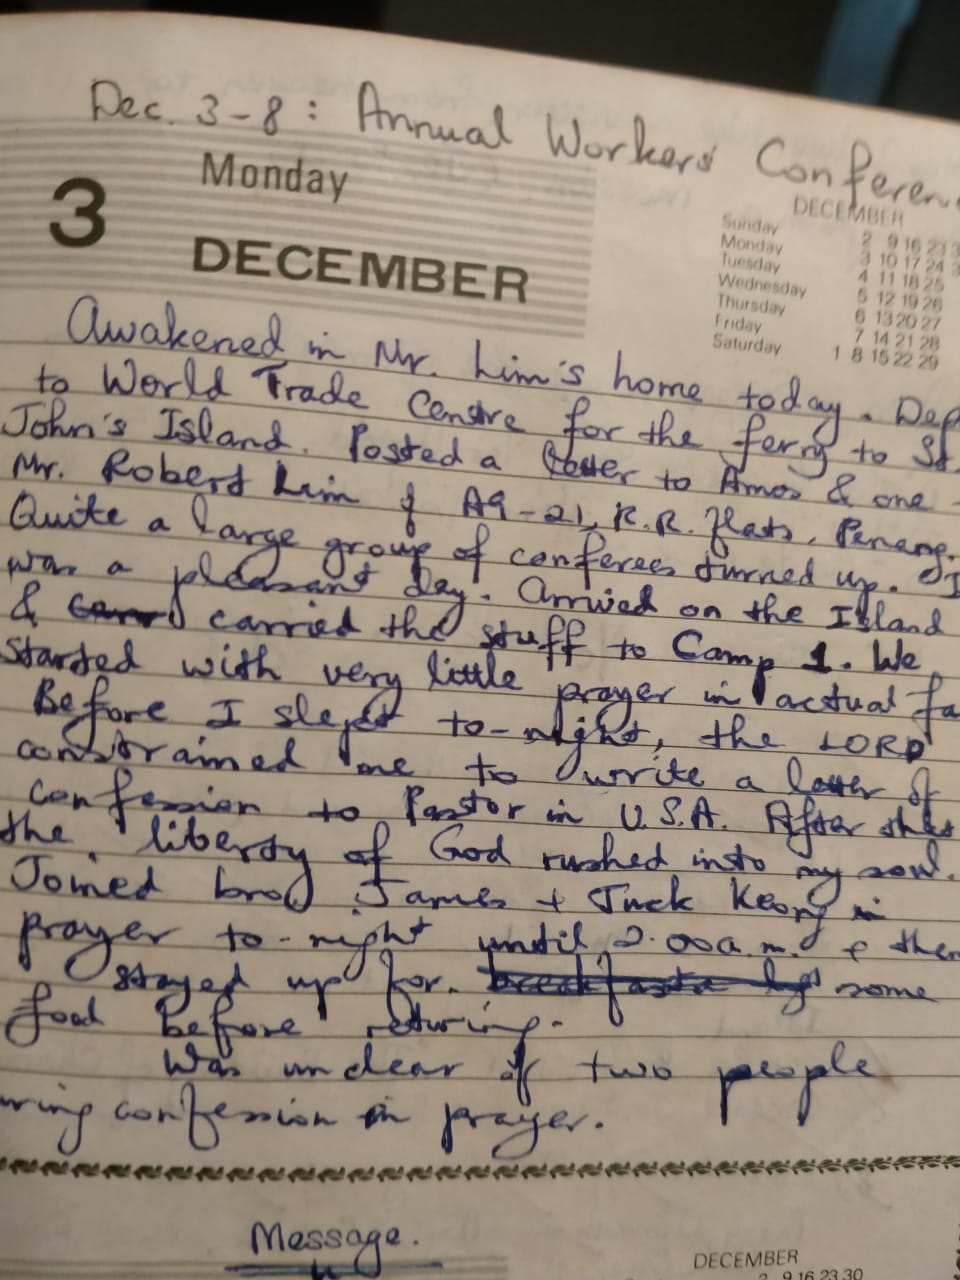 Dec. 3-8: Annual Workers' Conferen
3 Monday
DECEMBER
DECEMBER
Sunday 2 9 16 23
Monday 3 10 17 24
Tuesday 4 11 18 25
Wednesday 5 12 19 26
Thursday 6 13 20 27
Friday 7 14 21 28
Saturday 1 8 15 22 29
Awakened in Mr. Lim's home today. Dep
to World Trade Centre for the ferry to St.
John's Island. Posted a letter to Amos & one
Mr. Robert Lim of A9-21, R.R. flats, Penang.
Quite a large group of conferees turned up. I
was a pleasant day. Arrived on the Island
& carried the stuff to Camp 1. We
started with very little prayer in actual fa
Before I slept to-night, the LORD
constrained me to write a letter of
confession to Pastor in U.S.A. After that
the liberty of God rushed into my soul.
Joined bro James + Tuck Keong in
prayer to-night until 2.00a.m. & then
stayed up for breakfast some
food before retiring.
Was unclear of two people
uring confession in prayer.
Message.
DECEMBER
2 9 16 23 30